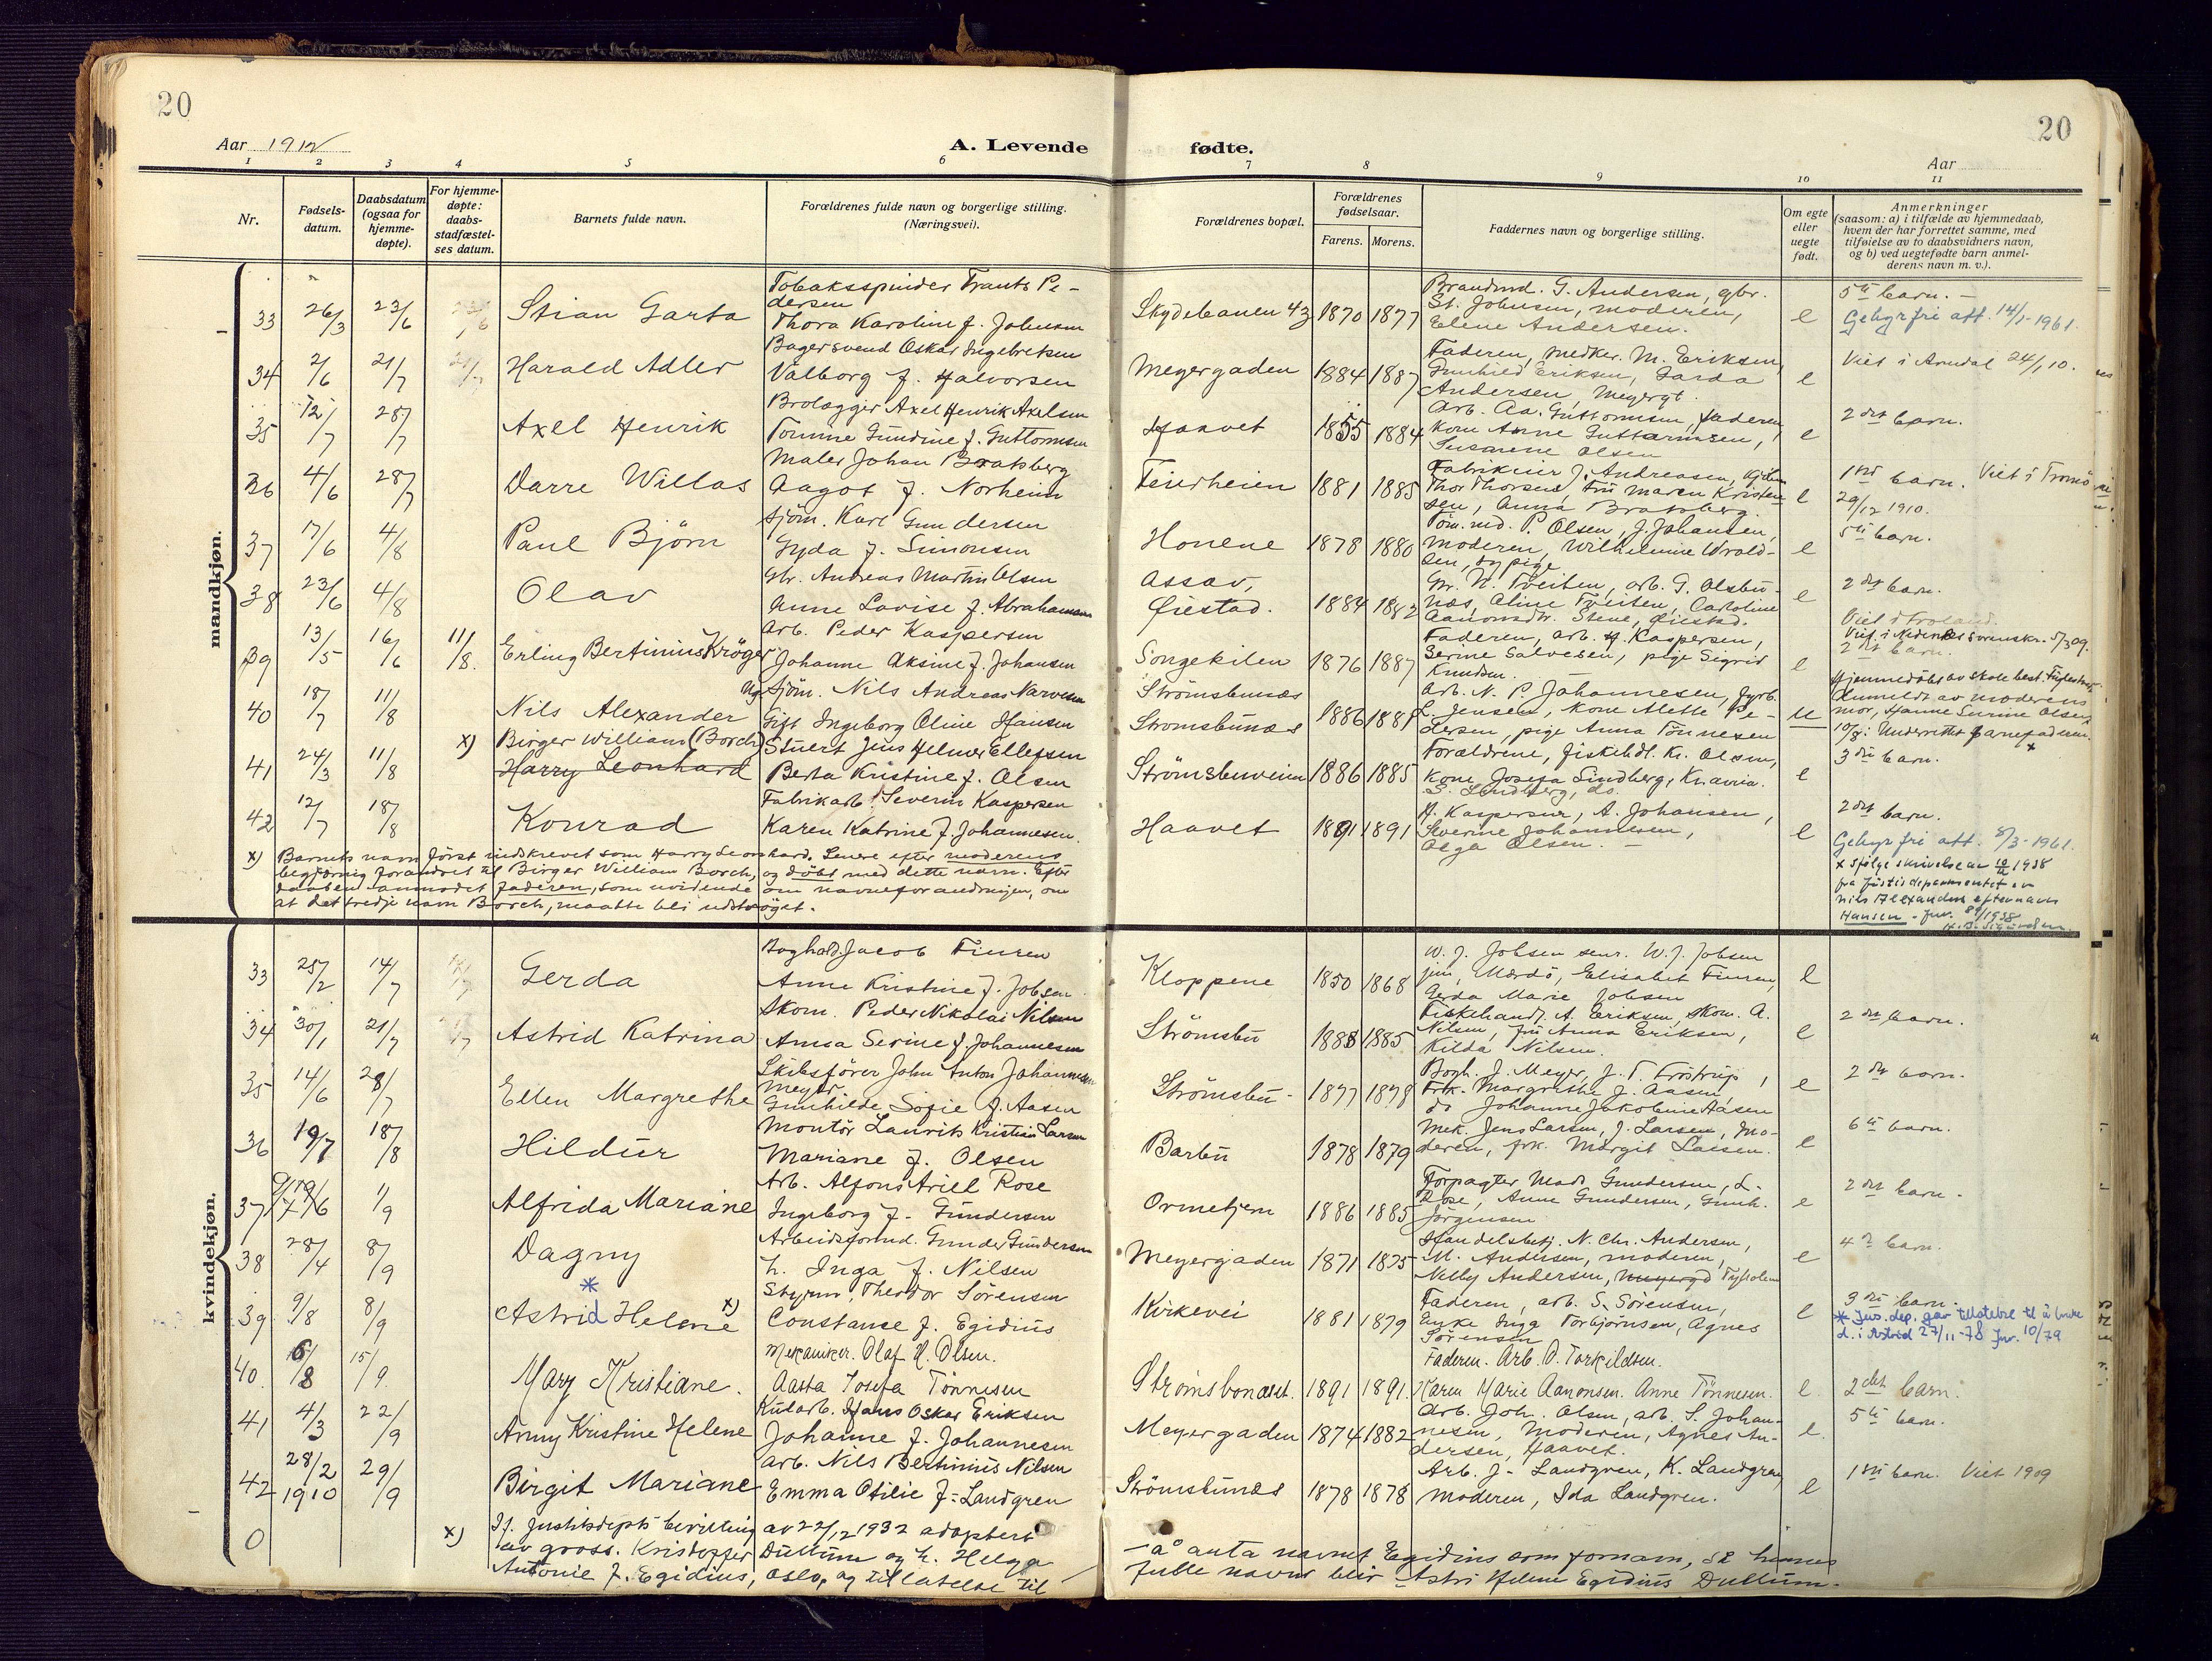 20
20
Aar 1912
A. Levende fødte.
Aar
1 2 3 4 5 6 7 8 9 10 11
Nr.
Fødsels-
datum.
Daabsdatum
(ogsaa for
hjemme-
døpte).
For hjemme-
døpte:
daabs-
stadfæstel-
ses datum.
Barnets fulde navn.
Forældrenes fulde navn og borgerlige stilling.
(Næringsvei).
Forældrenes bopæl.
Forældrenes
fødselsaar.
Farens. Morens.
Faddernes navn og borgerlige stilling.
Om egte
eller
uegte
født.
Anmerkninger
(saasom: a) i tilfælde av hjemmedaab,
hvem der har forrettet samme, med
tilføielse av to daabsvidners navn,
og b) ved uegtefødte barn anmel-
derens navn m. v.).
mandkjøn.
33 26/3 23/6 Stian Garta
Tobaksspinder Frants Pe-
dersen
Thora Karoline f. Johnsen
Skydebanen 43 1870 1877
Brandmd. G. Andersen, gbr.
St. Johnsen, moderen,
Elene Andersen.
e
5te barn. -
Gebyrfri att. 14/1-1961.
34 2/6 21/7 Harald Adler
Bagersvend Oskar Ingebretsen
Valborg f. Halvorsen
Meyergaden 1884 1887
Faderen, medker. M. Eriksen,
Gunhild Eriksen, Garda
Andersen, Meyergt.
e
Viet i Arendal 24/10.
35 12/7 28/7 Axel Henrik
Brolægger Axel Henrik Axelsen
Tomine Gundine f. Guttormsen
Haavet 1855 1884
Arb. Aa. Guttormsen, faderen,
kone Anne Guttormsen,
Susanne Olsen
e
2det barn.
36 4/6 28/7 Darre Willas
Maler Johan Bratsberg
Aagot f. Norheim
Feierheien 1881 1885
Fabrikeier J. Andreasen,
Thor Thorsen, Fru Maren Kristen-
sen, Anna Bratsberg.
e
1ste barn. Viet i Tromö
29/12 1910.
37 17/6 4/8 Paul Björn
Sjöm. Karl Gundersen
Gyda f. Simonsen
Honene 1878 1880
Töm.md. P. Olsen, J. Johansen,
moderen, Wilhelmine Wrold-
sen, sypige
e
5te barn.
38 23/6 4/8 Olav
Gbr. Andreas Martin Olsen
Anne Lovise f. Abrahamsen
Assav,
Öiestad. 1884 1882
Gbr. N. Tveiten, arb. G. Olsbu-
næs, Aline Tveiten, Caroline
Aanonsdtr. Stene, Öiestad.
e
2det barn.
Viet i Froland.
39 13/5 16/6 11/8. Erling Bertinius Kröger
Arb. Peder Kaspersen
Johanne Aksine f. Johansen
Songekilen 1876 1887
Faderen, arb. H. Kaspersen,
Serine Salvesen, pige Sigrid
Knudsen.
e
Viet i Nedenes Sorenskr. 5/3 09.
2det barn.
Hjemmedöbt av skolebest.
40 18/7 11/8 Nils Alexander
Ug. Sjöm. Nils Andreas Narvesen
Gift Ingeborg Oline Hansen
Strömsbunæs
Strömsbunæs 1886 1881
Arb. N. P. Johannesen, fyrb.
L. Jensen, kone Alette Pe-
dersen, pige Anna Tönnesen
u
Anmeldt av moderens
mor, Hanne Serine Olsen
10/8: Underrettet barnefaderen.
x
41 24/3 11/8 x) Birger William (Borch)
Harry Leonhard
Stuert Jens Helmer Ellefsen
Berta Kristine f. Olsen
Strömsbuveien 1886 1885
Forældrene, fiskehdl. Kr. Olsen,
kone Josefa Lindberg, Knavia.
S. Lindberg, do.
e
3die barn.
42 12/7 18/8 Konrad
Fabrikarb. Severin Kaspersen
Karen Katrine f. Johannesen.
Haavet 1891 1891
H. Kaspersen, A. Johansen,
Severine Johannesen,
Olga Olsen. -
e
2det barn.
Gebyrfri att. 8/3-1961.
x Ifølge skrivelse av 1938
fra Justisdepartementet er
Nils Alexanders efternavn
Hansen - Jnr. 1938
x) Barnets navn först indskrevet som Harry Leonhard. Senere efter moderens
begjæring forandret til Birger William Borch, og döbt med dette navn. Efter
daaben anmodet faderen, som uvidende om navneforandringen, om
at det tredje navn Borch, maatte bli utströget.
kvindekjøn.
33 25/2 14/7 Gerda
Boghold Jacob Finren
Anne Kristine f. Jobsen
Kloppene 1850 1868
W. J. Jobsen senr. W. J. Jobsen
jun, Mærdö, Elisabet Finren,
Gerda Marie Jobsen
e
34 30/1 21/7 Astrid Katrina
Skom. Peder Nikolai Nilsen
Anna Serine f. Johannesen
Strömsbu 1888 1885
Fiskehand. A. Eriksen, skom. A.
Nilsen, fru Anna Eriksen,
Kilda Nilsen.
e
2det barn.
35 14/6 28/7 Ellen Margrethe
Skibsförer John Anton Johannesen
Meyer
Gunhilde Sofie f. Aasen
Strömsbu - 1877 1878
Bogh. J. Meyer, J. T. Fröstrup,
Frk. Margrethe J. Aasen,
do Johanne Jakobine Aasen
e
2det barn.
36 19/7 18/8 Hildur
Montör Laurits Kristian Larsen
Mariane f. Olsen
Barbu 1878 1879
Mek. Jens Larsen, J. Larsen, mo-
deren, frk. Margit Larsen.
e
6te barn.
37 19/6 1/9 Alfrida Mariane
Arb. Alfons Ariel Rose
Ingeborg f. Gundersen
Ormetjern 1886 1885
Forpagter Mads Gundersen, L.
Rose, Anne Gundersen, Gunh.
Jörgensen
e
2det barn -
38 28/4 8/9 Dagny
Arbeidsformd. Gunder Gundersen
h. Inga f. Nilsen
Meyergaden 1871 1875
Handelsbetj. N. Chr. Andersen,
M. Andersen, moderen,
Nelly Andersen, Meyergd Tyholmen
e
4de barn.
39 9/8 8/9 * Astrid Helene x)
Styrm. Theodor Sörensen
Constance f. Egidius
Kirkevei 1881 1879
Faderen, arb. S. Sörensen,
Enke Inga Torbjörnsen, Agnes
Sörensen
e
3die barn.
* Jus. dep. gav tillatelse til å bruke
d. i Astrid 27/11-78 Jnr. 10/79
40. 6/8 15/9. Mary Kristiane.
Mekaniker. Olaf N. Olsen.
Aasta Josefa Tönnesen
Strömsbonæset. 1891 1891.
Faderen. Arb. O. Torkildsen.
Karen Marie Aanonsen. Anne Tönnesen.
e.
2det barn.
41 4/3 22/9 Anny Kristine Helene
Kularb. Hans Oskar Eriksen
Johanne f. Johannesen
Meyergaden 1874 1882
Arb. Joh. Olsen, arb. S. Johan-
nesen, Moderen, Agnes An-
dersen, Haavet.
e.
5te barn.
42 28/2 1910 29/9 Birgit Mariane
Arb. Nils Bertinius Nilsen
Emma Otilie f. Landgren
Strömsbunæs 1878 1878
Arb. J. Landgren, K. Landgren,
moderen, Ida Landgren.
e
1ste barn. Viet 1909
0 x) If. Justitsdepts bevilling av 22/12 1932 adoptert
av gross. Kristoffer Dullum og h. Helga
Antonie f. Egidius, Oslo, og tillatelse til
- å anta navnet Egidius som fornavn, så hennes
fulle navn blir Astri Helene Egidius Dullum.